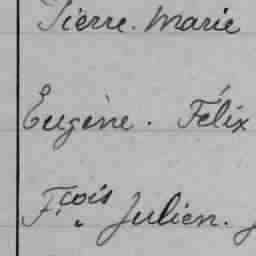 Pierre. Marie
Eugène. Félix
F.çois Julien.